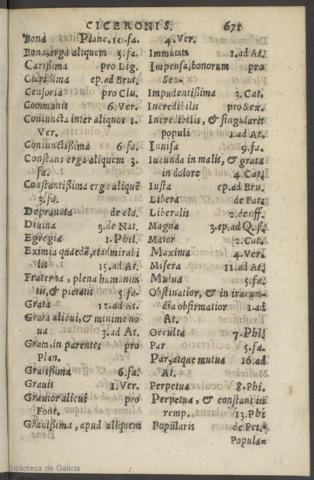 CICERONIS. 671
Bona Planc. 10. fa.
Bona, erga aliquem 5. fa.
Carißima pro Lig.
Clarißima ep. ad Brut.
Censoria pro Clu.
Communis 6. Ver.
Coniuncta inter aliquos 1.
Ver.
Coniunctißima 6 fa.
Constans erga aliquem 3.
fa.
Constantißima erga aliquē
3. fa.
Deprauata de cla.
Diuina 3. de Nat.
Egregia 1. Phil.
Eximia quædā, et admirabi
lis 15. ad At.
Fraterna, plena humanita
tis, & pietatis 5. fa.
Grata 12. ad At.
Grata alicui, & minime no
ua 3. ad At.
Grata, in parentes pro
Plan.
Gratißima 6. fa.
Grauis 1. Ver.
Grauior alicui pro
Font.
Grauißima, apud aliquem
4. Ver.
Immutata 1. ad At.
Impensa, bonorum pro
Sex.
Impudentißima 3. Cat.
Incredibilis pro Sex.
Incredibilis, & singularis
populi 1. ad At.
Inuisa 9. fa.
Iucunda in malis, & grata
in dolore 4. Cat.
Iusta ep. ad Bru.
Libera de Fato
Liberalis 2. de off.
Magna 3. ep. ad Q. fr.
Maior 2. Cat.
Maxima 4. Ver.
Misera 11. ad At.
Mutua 5. fa.
Obstinatior, & in iracun-
dia obfirmatior 1. ad
At.
Occulta 7. Phil.
Par 5. fa.
Par, atque mutua 16. ad
At.
Perpetua 8. Phi.
Perpetua, & constans in
remp. 13. Phi
Popularis de Pet.
Popula-
Biblioteca de Galicia